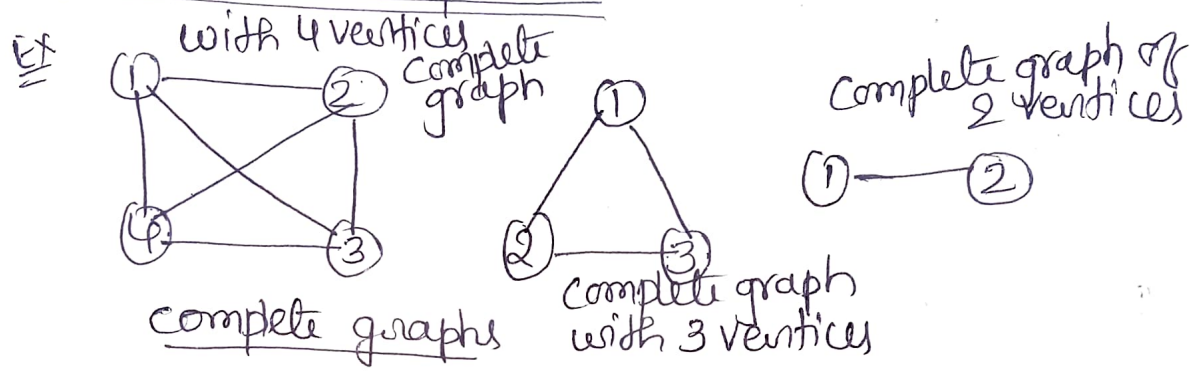 Ex
with 4 vertices
complete
graph
1
2
4
3
complete graphs
1
2
3
complete graph
with 3 vertices
complete graph of
2 vertices
1
2